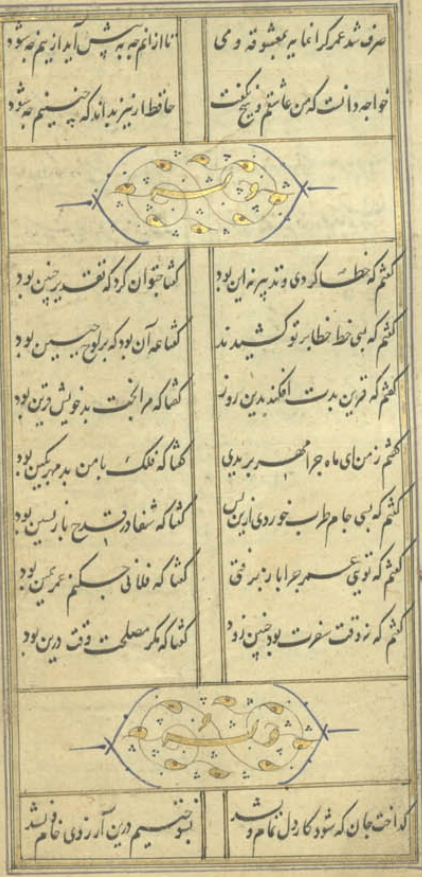 صرف شد عمر گرانمایه بمعشوقه و می تا از آنم چه به پیش آید ازینم چه شود
خواجه دانست که من عاشقم و هیچ نگفت حافظ ار نیز بداند که چنینم چه شود
وله
گفتم که خطا کردی و تدبیر نه این بود گفتا چتوان کرد که تقدیر چنین بود
گفتم که بسی خط خطا بر تو کشیدند گفتا همه آن بود که بر لوح جبین بود
گفتم که قرین بدت افکند بدین روز گفتا که مرا بخت بد خویش قرین بود
گفتم ز من ای ماه چرا مهر بریدی گفتا که فلک با من بد مهر بکین بود
گفتم که بسی جام طرب خوردی ازین پس گفتا که شفا در قدح بازپسین بود
گفتم که تویی عمر چرا باز برفتی گفتا که فلانی چکنم عمر همین بود
گفتم که نه وقت سفرت بود چنین زود گفتا که مگر مصلحت وقت درین بود
وله
گداخت جان که شود کار دل تمام و نشد بسوختیم درین آرزوی خام و نشد